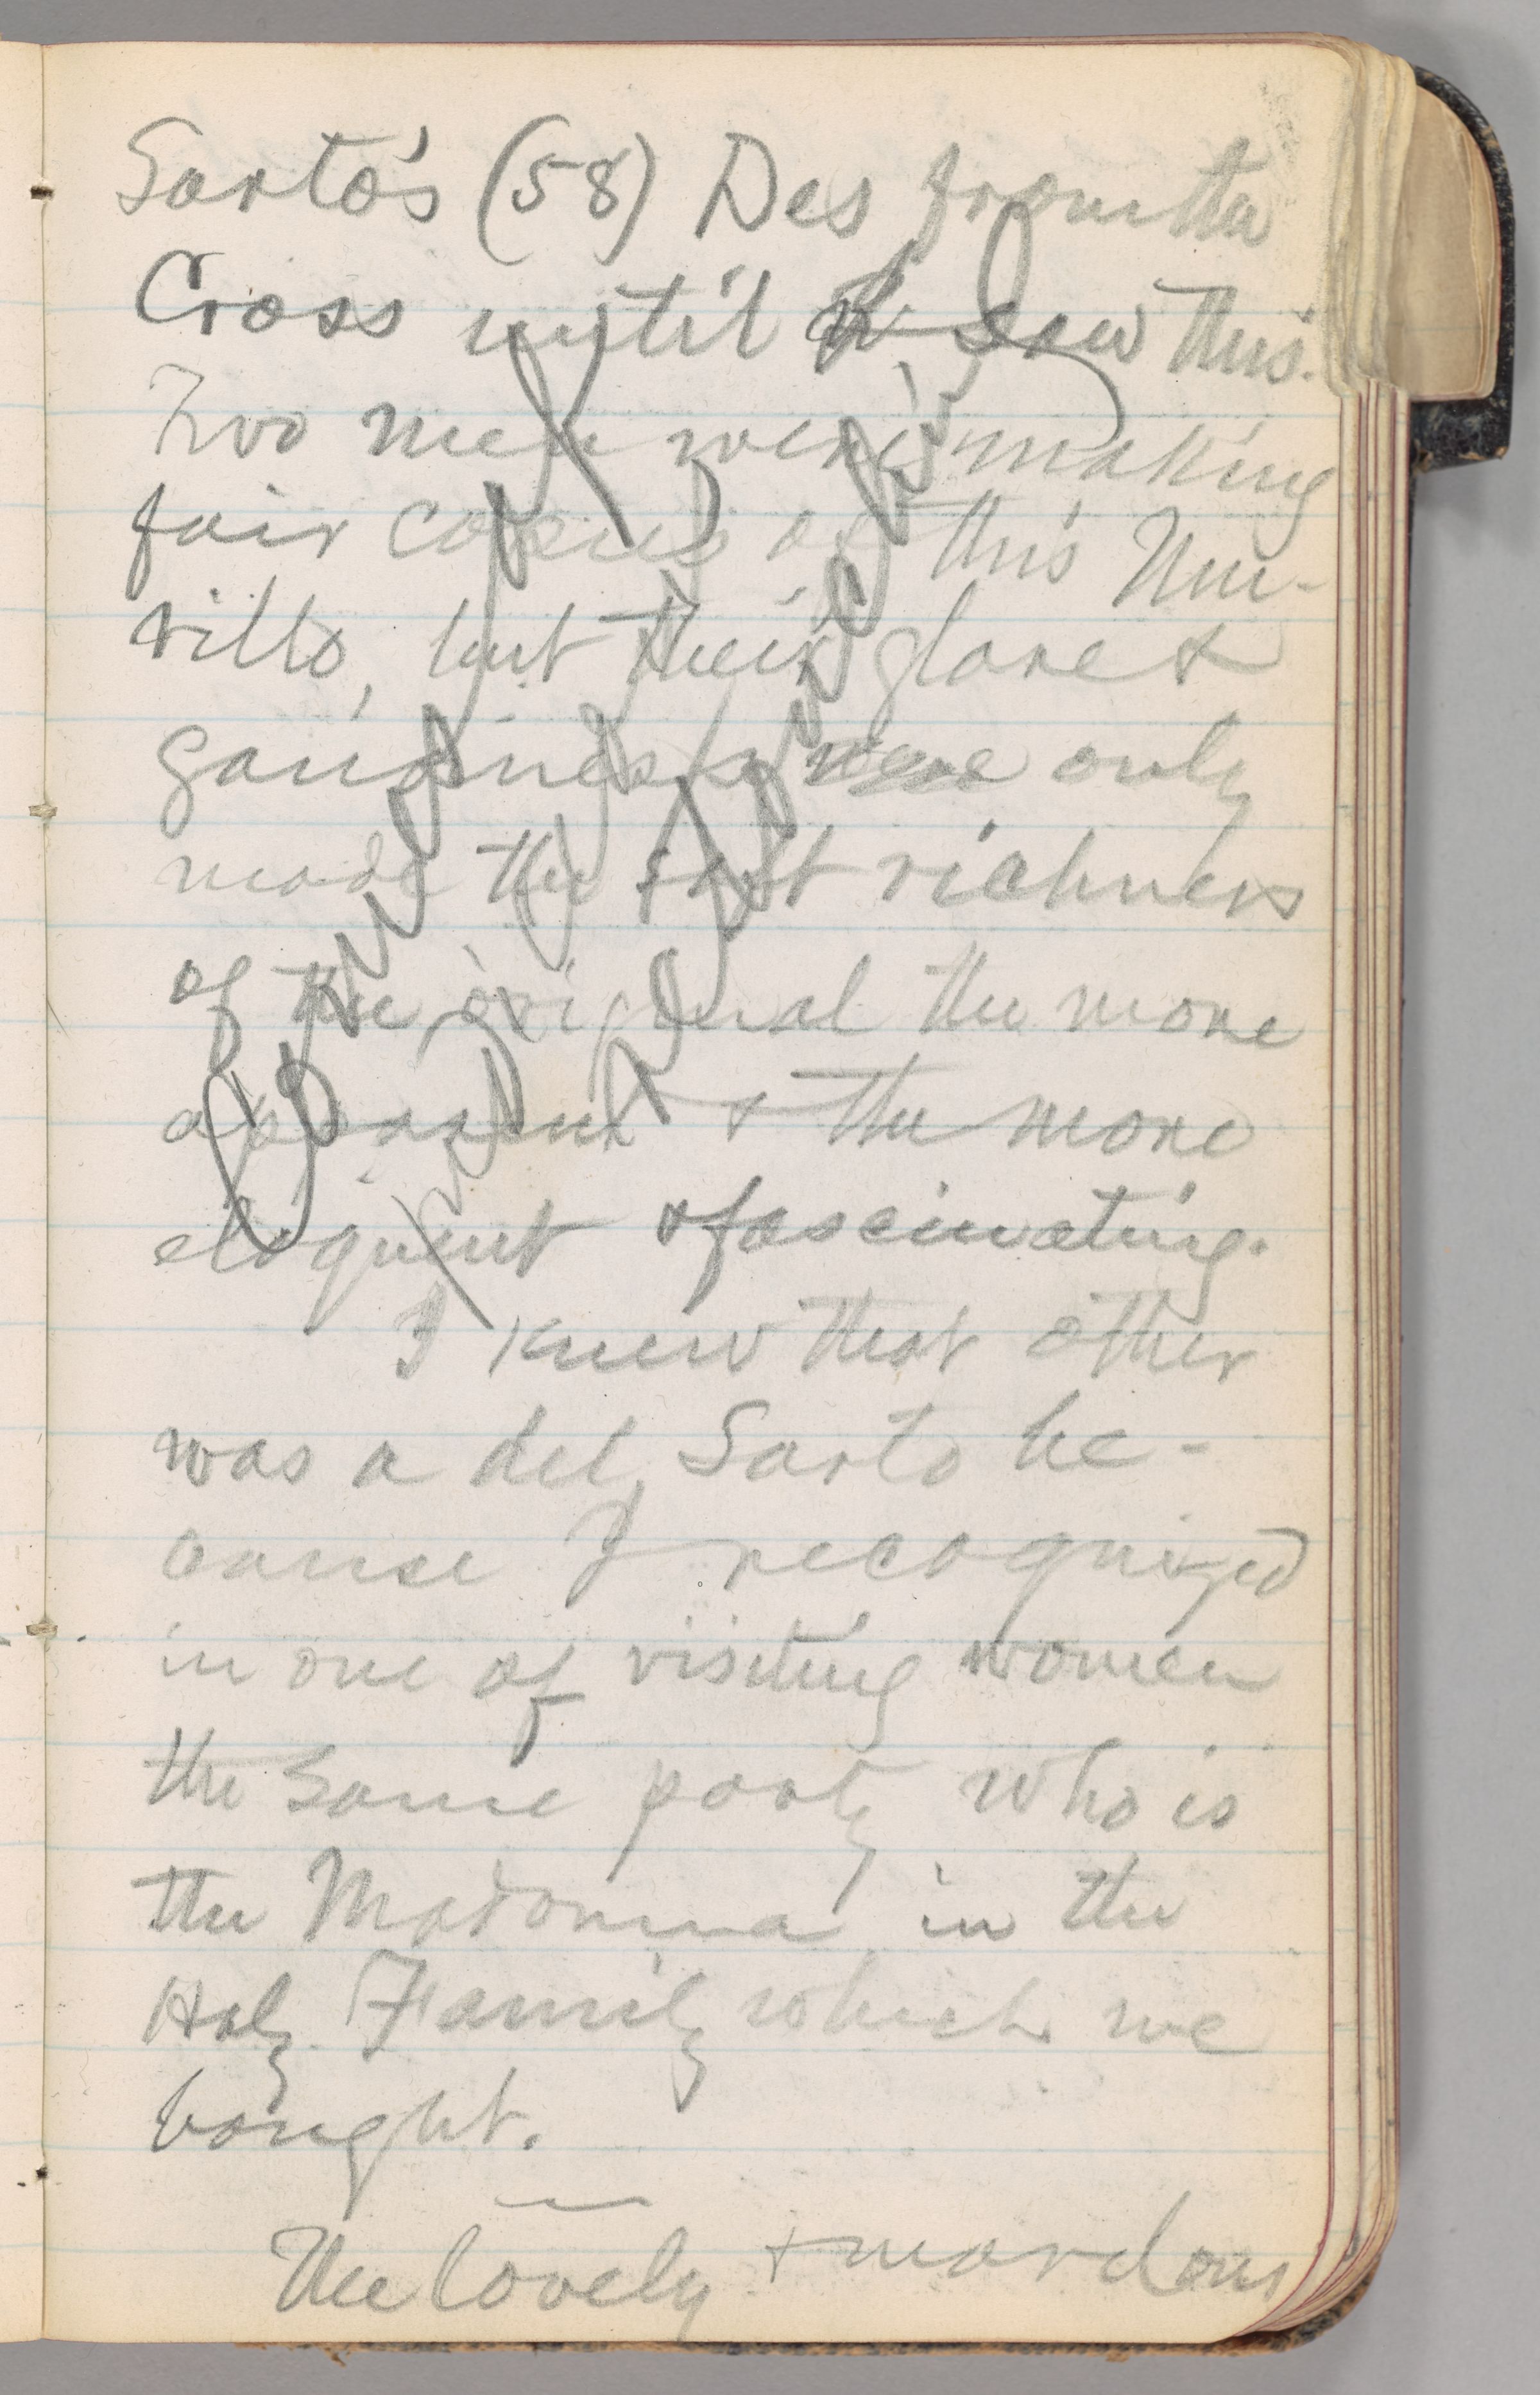 Sarto's (58) Des from the
Cross until I saw this.
Two men were making
fair copies of this Mu-
rillo, but their glare &
gaudiness only
made the soft richness
of the original the more
apparent & the more
eloquent & fascinating.
I knew that other
was a del Sarto be-
cause I recognized
in one of visiting women
the same party who is
the Madonna in the
Holy Family which we
bought.
The lovely & marvelous